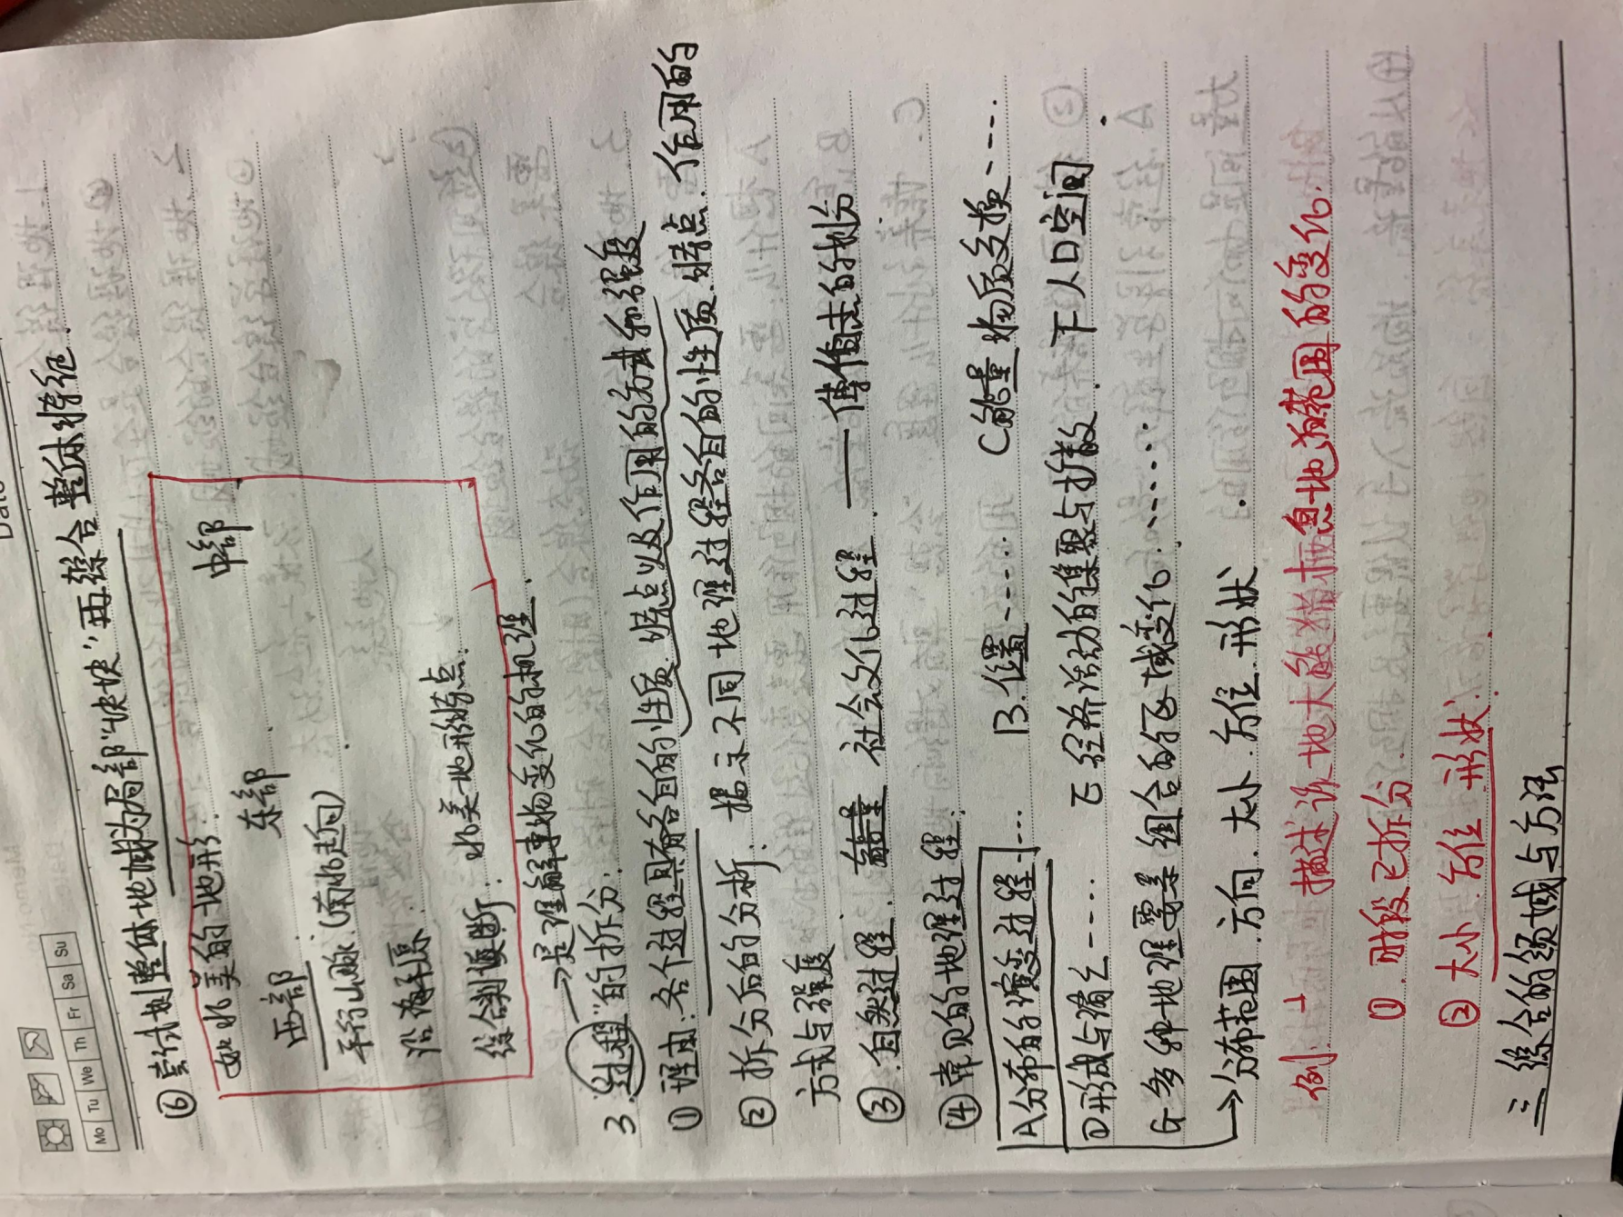 Date
Mo Tu We Th Fr Sa Su
⑥ 尝试划整体地域为局部"块块",再综合整体特征.
如北美的地形.
西部 东部 中部
平行山脉.(南北走向)
沿海平原.
综合判断. 北美地形特点.
3. "过程"的拆分. →是理解事物变化的机理.
① 理由:各个过程具备各自的性质.特点以及作用的方式和强度
② 拆分后的分析. 揭示不同地理过程各自的性质.特点.作用的
方式与强度
③.自然过程. 社会文化过程.——传统的划分
④ 常见的地理过程:
A分布的演变过程…. B.位置…. C能量物质交换….
D形成与消亡…. E 经济活动的集聚与扩散. F 人口空间.
G 多种地理要素组合的区域变化……
→分布范围.方向.大小.方位.形状.
例. 描述该地大熊猫栖息地范围的变化.
①.时段已拆分.
② 大小.方位.形状.
三 综合的领域与方法